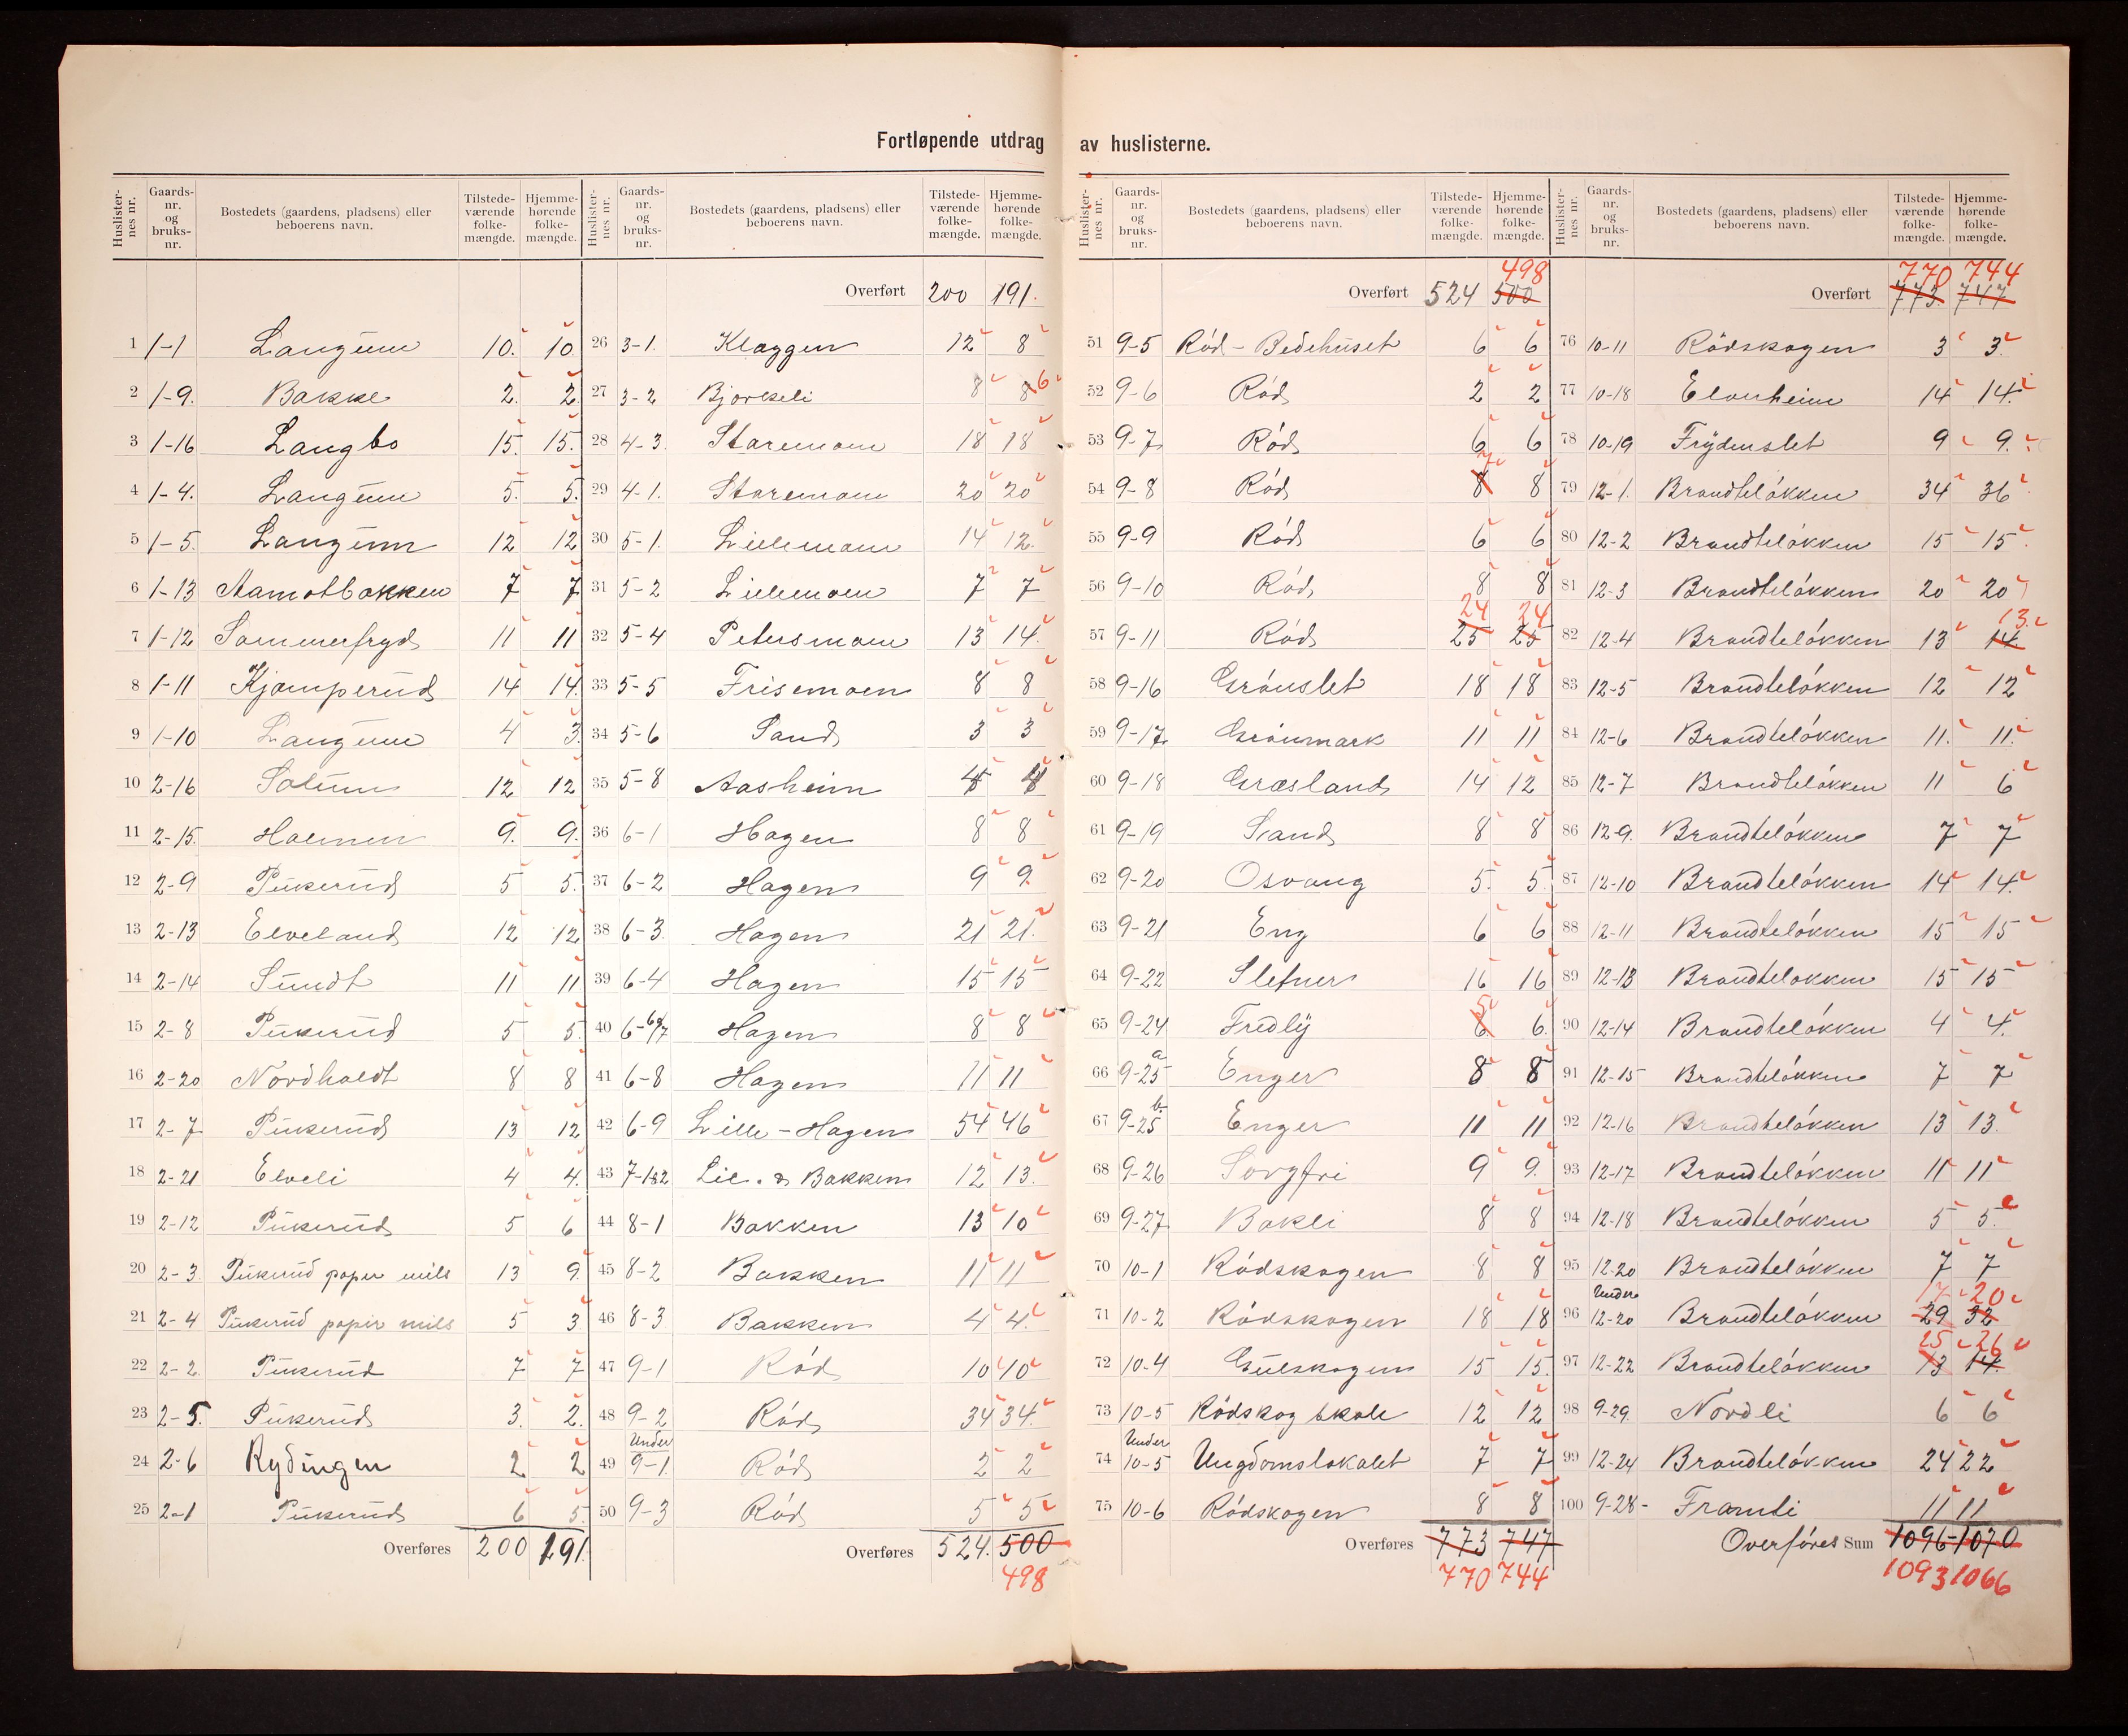 Fortløpende utdrag av huslisterne.
Huslister-nes nr. Gaards-nr. og bruks-nr. Bostedets (gaardens, pladsens) eller beboerens navn. Tilstede-værende folke-mængde. Hjemme-hørende folke-mængde.
1 1-1 Langum 10. 10
2 1-9. Bakke 2. 2
3 1-16 Langbo 15. 15.
4 1-4. Langum 5. 5.
5 1-5. Langum 12 12
6 1-13 Aamotbakken 7 7
7 1-12 Sommerfryd 11 11
8 1-11 Kjamperud 14 14.
9 1-10 Langum 4 3.
10 2-16 Solum 12 12
11 2-15. Holmen 9. 9.
12 2-9 Pükerud 5 5.
13 2-13 Elveland 12 12
14 2-14 Sundt 11 11
15 2-8 Pükerud 5 5.
16 2-20 Nordholdt 8 8
17 2-7 Pükerud 13 12
18 2-21 Elveli 4 4.
19 2-12 Pükerud 5 6
20 2-3. Pükerud paper mils 13 9.
21 2-4 Pükerud papir mils 5 3
22 2-2. Pükerud 7 7
23 2-5. Pükerud 3. 2.
24 2-6 Rydingen 2 2
25 2-1 Pükerud 6 5.
Overføres 200 191.
Huslister-nes nr. Gaards-nr. og bruks-nr. Bostedets (gaardens, pladsens) eller beboerens navn. Tilstede-værende folke-mængde. Hjemme-hørende folke-mængde.
Overført 200 191.
26 3-1. Klaggen 12 8
27 3-2 Bjorkeli 8 8 6
28 4-3. Staremoen 18 18
29 4-1. Storemoen 20 20
30 5-1. Lillemoen 14 12.
31 5-2 Lillemoen 7 7
32 5-4 Petersmoen 13 14.
33 5-5 Frisemoen 8 8
34 5-6 Sand 3 3
35 5-8 Aasheim 4 4
36 6-1 Hagen 8 8
37 6-2 Hagen 9 9.
38 6-3. Hagen 21 21.
39 6-4 Hagen 15 15
40 6-6&7 Hagen 8 8
41 6-8 Hagen 11 11
42 6-9 Lille-Hagen 54 46
43 7-1&2 Lie. & Bakken 12 13.
44 8-1 Bakken 13 10
45 8-2 Bakken 11 11
46 8-3 Bakken 4 4.
47 9-1 Rød 10 10
48 9-2 Rød 34 34.
49 Under 9-1. Rød 2 2
50 9-3 Rød 5 5
Overføres 524. 500
498
Huslister-nes nr. Gaards-nr. og bruks-nr. Bostedets (gaardens, pladsens) eller beboerens navn. Tilstede-værende folke-mængde. Hjemme-hørende folke-mængde.
498
Overført 524 500
51 9-5 Ród-Bedehuset 6 6
52 9-6 Ród 2 2
53 9-7 Ród 6 6
54 9-8 Ród 8 7 8
55 9-9 Ród 6 6
56 9-10 Ród 8 8
57 9-11 Ród 25 24 25 24
58 9-16 Grónslet 18 18
59 9-17 Grónmark 11 11
60 9-18 Græsland 14 12
61 9-19 Sand 8 8
62 9-20 Osvang 5. 5.
63 9-21 Eng 6 6
64 9-22 Sletner 16 16
65 9-24 Fredly 6 5 6.
66 9-25 a Enger 8 8
67 9-25 b. Enger 11 11
68 9-26 Sorgfri 9 9.
69 9-27 Bakli 8 8
70 10-1 Ródskogen 8 8
71 10-2 Ródskogen 18 18
72 10-4 Gulskogen 15 15.
73 10-5 Ródskog skole 12 12
74 Under 10-5 Ungdomslokalet 7 7
75 10-6 Ródskogen 8 8
Overføres 773 747
770 744
Huslister-nes nr. Gaards-nr. og bruks-nr. Bostedets (gaardens, pladsens) eller beboerens navn. Tilstede-værende folke-mængde. Hjemme-hørende folke-mængde.
770 744
Overført 773. 747
76 10-11 Ródskogen 3 3.
77 10-18 Elverheim 14 14.
78 10-19 Frydenslet 9 9.
79 12-1. Brandtelókken 34 36
80 12-2 Brandtelókken 15 15
81 12-3 Brandtelókken 20 20
82 12-4 Brandtelókken 13 14. 13.
83 12-5 Brandtelókken 12 12
84 12-6 Brandtelókken 11. 11.
85 12-7 Brandtelókken 11 6
86 12-9. Brandtelókken 7 7
87 12-10 Brandtelókken 14 14.
88 12-11 Brandtelókken 15 15
89 12-13 Brandtelokken 15 15
90 12-14 Brandtelókken 4 4.
91 12-15 Brandtelókken 7 7
92 12-16 Brandtelókken 13 13.
93 12-17 Brandtelókken 11 11
94 12-18 Brandtelókken 5 5.
95 12-20 Brandtelókken 7 7
96 Under 12-20 Brandtelókken 29 17 32 20
97 12-22 Brandtelókken 13 25 14. 26
98 9-29. Nordli 6 6
99 12-24 Brandtelókken 24 22
100 9-28- Framti 11 11
Overføres Sum 1096-1070
1093 1066